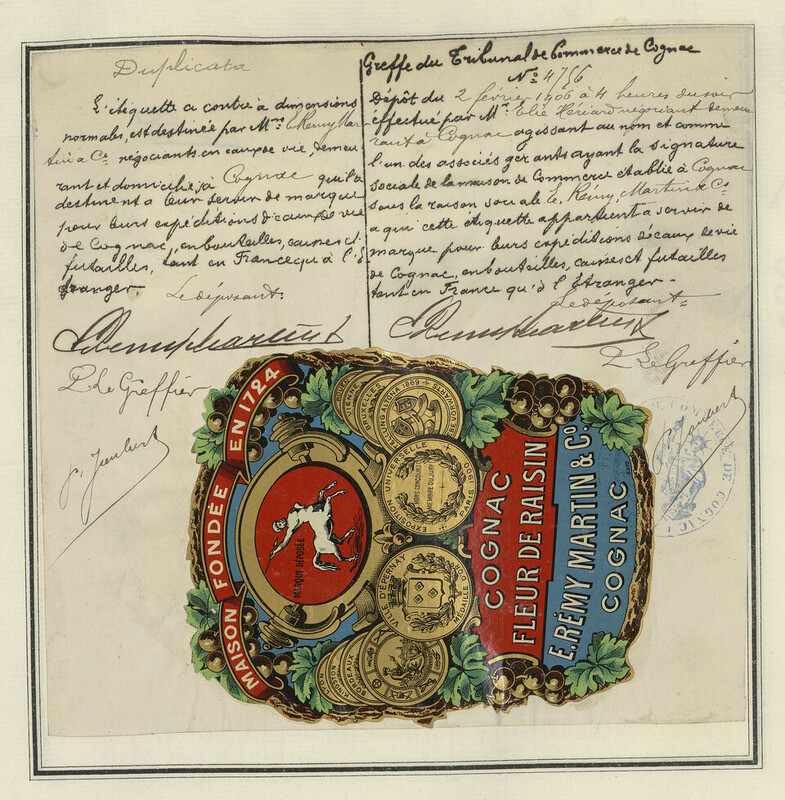 Duplicata
L'étiquette ci contre à dimensions
normales, est destinée par M.rs E. Rémy Mar
tin & Co négociants en eaux de vie, demeu
rant et domiciliés à Cognac qu'ils
destinent à leur servir de marque
pour leurs expéditions d'eaux de vie
de Cognac, en bouteilles, caisses et
futailles, tant en France qu'à l'É
tranger
Le déposant.
E Remy Martin & Co
P. Le Greffier
Greffe du Tribunal de Commerce de Cognac
No 4756
Dépôt du 2 février 1906 à 4 heures du soir
effectué par Mr. Elie Hériard négociant demeu
rant à Cognac agissant au nom et comme
l'un des associés gérants ayant la signature
sociale de la maison de Commerce établie à Cognac
sous la raison sociale E. Rémy Martin & Co
à qui cette étiquette appartient à servir de
marque pour leurs expéditions d'eaux de vie
de Cognac, en bouteilles, caisses et futailles
tant en France qu'à l'Étranger -
Le déposant
E Remy Martin & Co
P. Le Greffier
MAISON FONDÉE EN 1724
MARQUE DÉPOSÉE
EXPOSITION UNIVERSELLE
PARIS 1900
HORS CONCOURS
MEMBRE DU JURY
VILLE D'ÉPERNAY
MÉDAILLE D'OR
BRUXELLES
BORDEAUX
COGNAC
FLEUR DE RAISIN
E. RÉMY MARTIN & Co
COGNAC
DE COMMERCE DE COGNAC